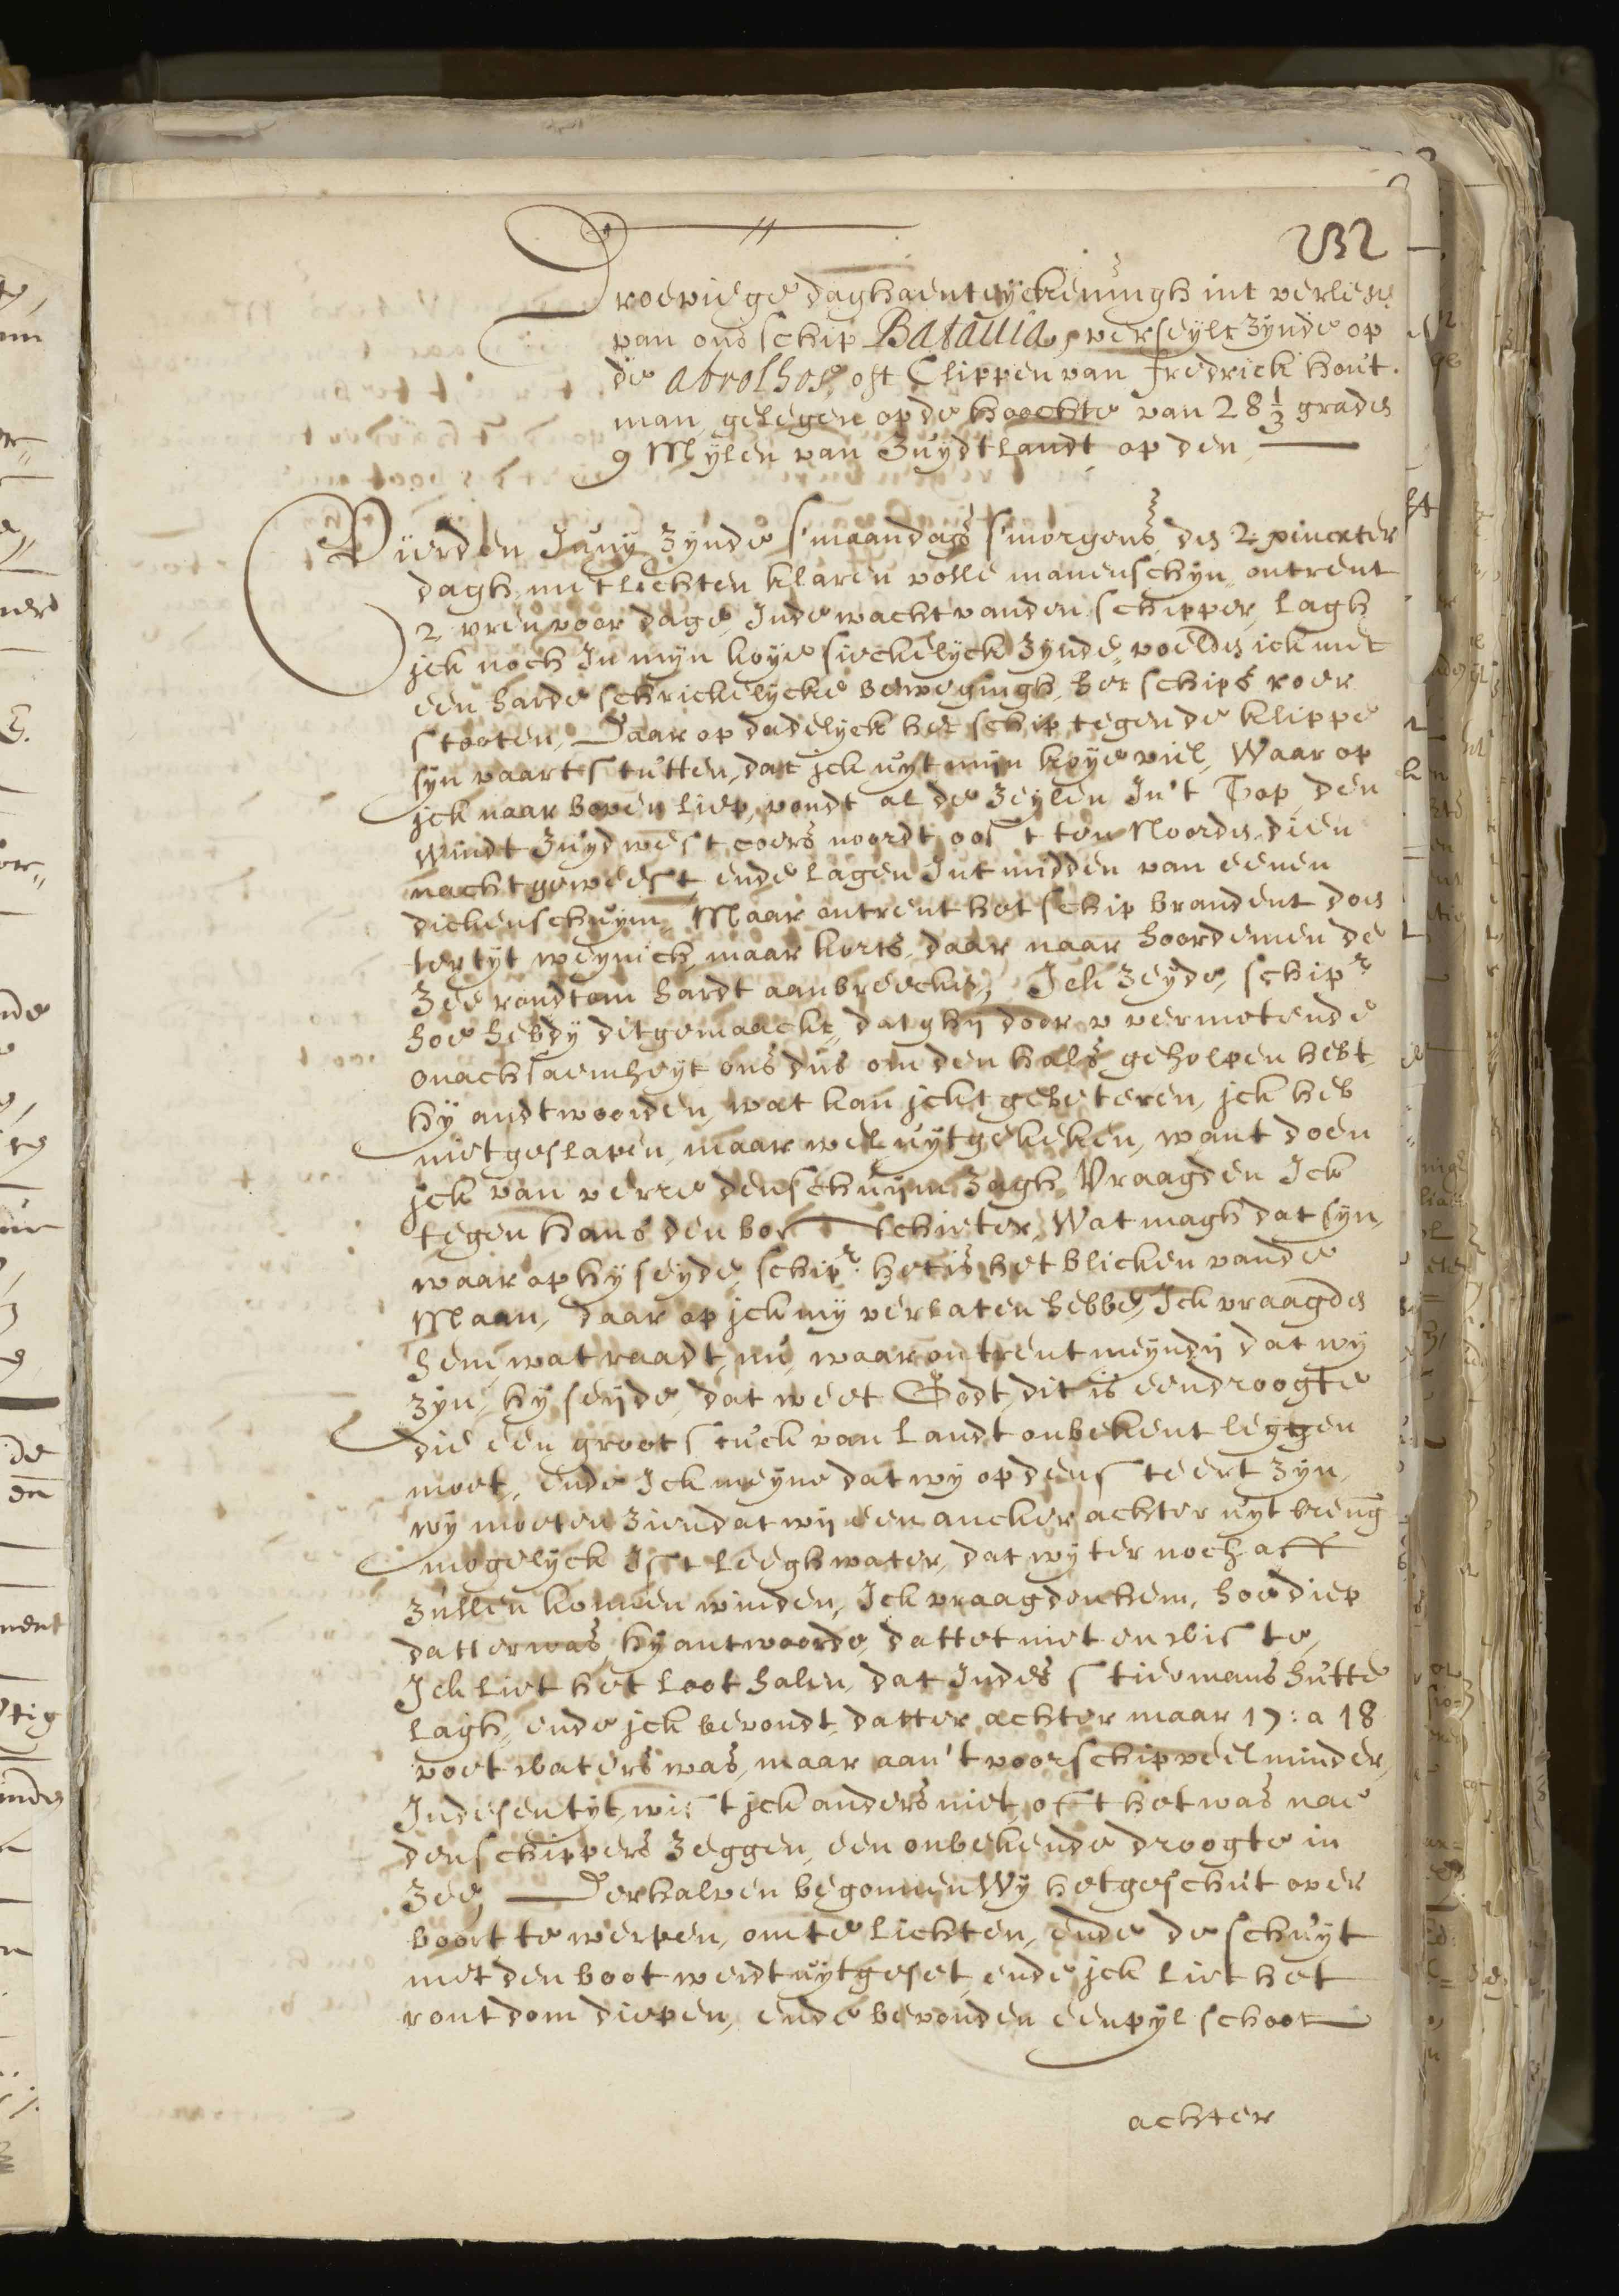 232
Droevige daghaenteyckeningh int verliesen
van ons schip Batauia, verseylt zynde op
de abrolhos, oft Clippen van fredrick hout.
man, gelegen op de hoochte van 28 1/3 graden
9 Mylen van Zuydtlandt op den
Vierden Juny zynde s'maandags s'morgens, den 2 pincxter
dagh met lichten klaren volle manenschyn, ontrent
2 vren voor dage, Inde wacht vanden schipper, lagh
jck noch In myn koye sieckelyck zynde, voelden ick met
een harde schrickelycke beweegingh, het schips roer
stooten, Daar op dadelyck het schip tegen de klippe
syn vaart stutten, dat jck uyt mijn koye viel, Waar op
jck naar boven liep, vondt al de zeylen In't Top, den
Windt Zuydwest coers noordt oost ten Noorden, dien
nacht geweest, ende lagen Int midden van eenen
dicken schuym, Maar ontrent het schip branden't doen
ter tyt weynich, maar korts daar naar hoordemen de
Zee rondtom hardt aanbreecken, Ick zeyde, schipr
hoe hebdy dit gemaackt, dat ghij door v vermetende
onachsaemheyt ons dus om den hals geholpen hebt
hy andtwoorden, wat kan jckt gebeteren, jck heb
niet geslapen, maar wel uytgekeken, want doen
jck van verre den schuijm zagh, Vraagden Ick
tegen hans den bosschieter, Wat magh dat syn,
waar op hij seyde, schipr. het is het blicken vande
Maan, daar op jck my verlaten hebbe, Ick vraagden
hem, wat raadt, nu, waar ontrent meyndij dat wy
zyn, hy seijde, dat weet Godt, dit is een droogte
die een groot stuck van Landt onbekent leggen
moet, ende Ick meyne dat wy op den steert zyn,
wy moeten zien dat wij een ancker achter uyt breng
mogelyck Ist leegh water, dat wyter noch aff
zullen konnen winden, Ick vraagden hem, hoe diep
datter was, hy antwoorde, dattet niet en wiste,
Ick liet het loot halen, dat Indes stiermans hutte
lagh, ende jck bevondt datter achter maar 17: a 18
voet waters was, maar aan't voorschip veel minder,
Indesen tyt, wist jck anders niet, oft het was nae
den schippers zeggen, een onbekende droogte in
Zee, Derhalven begonnen Wy het geschut over
boort te werpen, om te lichten, ende de schuyt
met den boot werdt uytgeset, ende jck liet het
rontdom diepen, ende bevonden een pyl schoot
achter